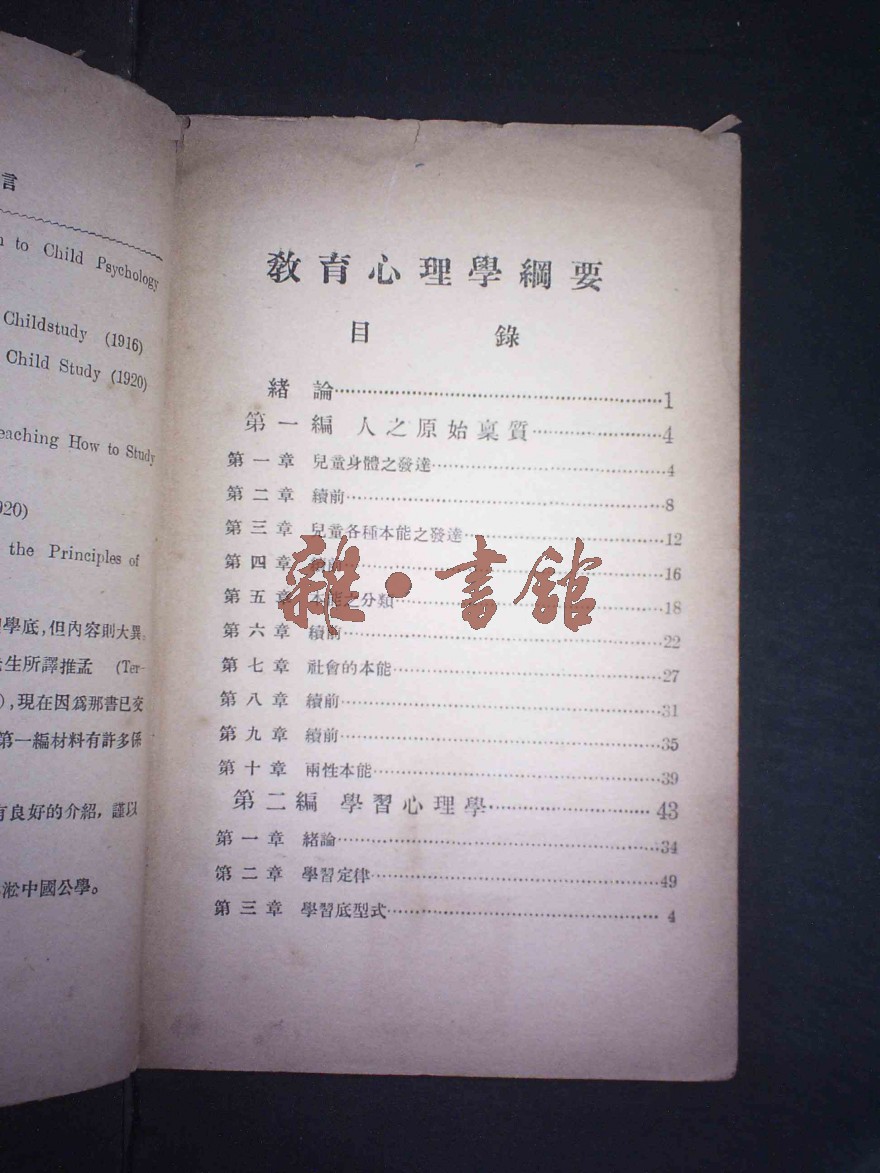 言
to Child Psychology
Childstudy (1916)
Child Study (1920)
eaching How to Study
920)
the Principles of
學底,但內容則大異。
生所譯推孟 (Ter-
),現在因爲那書已交
第一編材料有許多係
有良好的介紹,謹以
淞中國公學。
教育心理學綱要
目 錄
緒 論 1
第一編 人之原始稟質 4
第一章 兒童身體之發達 4
第二章 續前 8
第三章 兒童各種本能之發達 12
第四章 續前 16
第五章 本能之分類 18
第六章 續前 22
第七章 社會的本能 27
第八章 續前 31
第九章 續前 35
第十章 兩性本能 39
第二編 學習心理學 43
第一章 緒論 34
第二章 學習定律 49
第三章 學習底型式 4
雜·書館